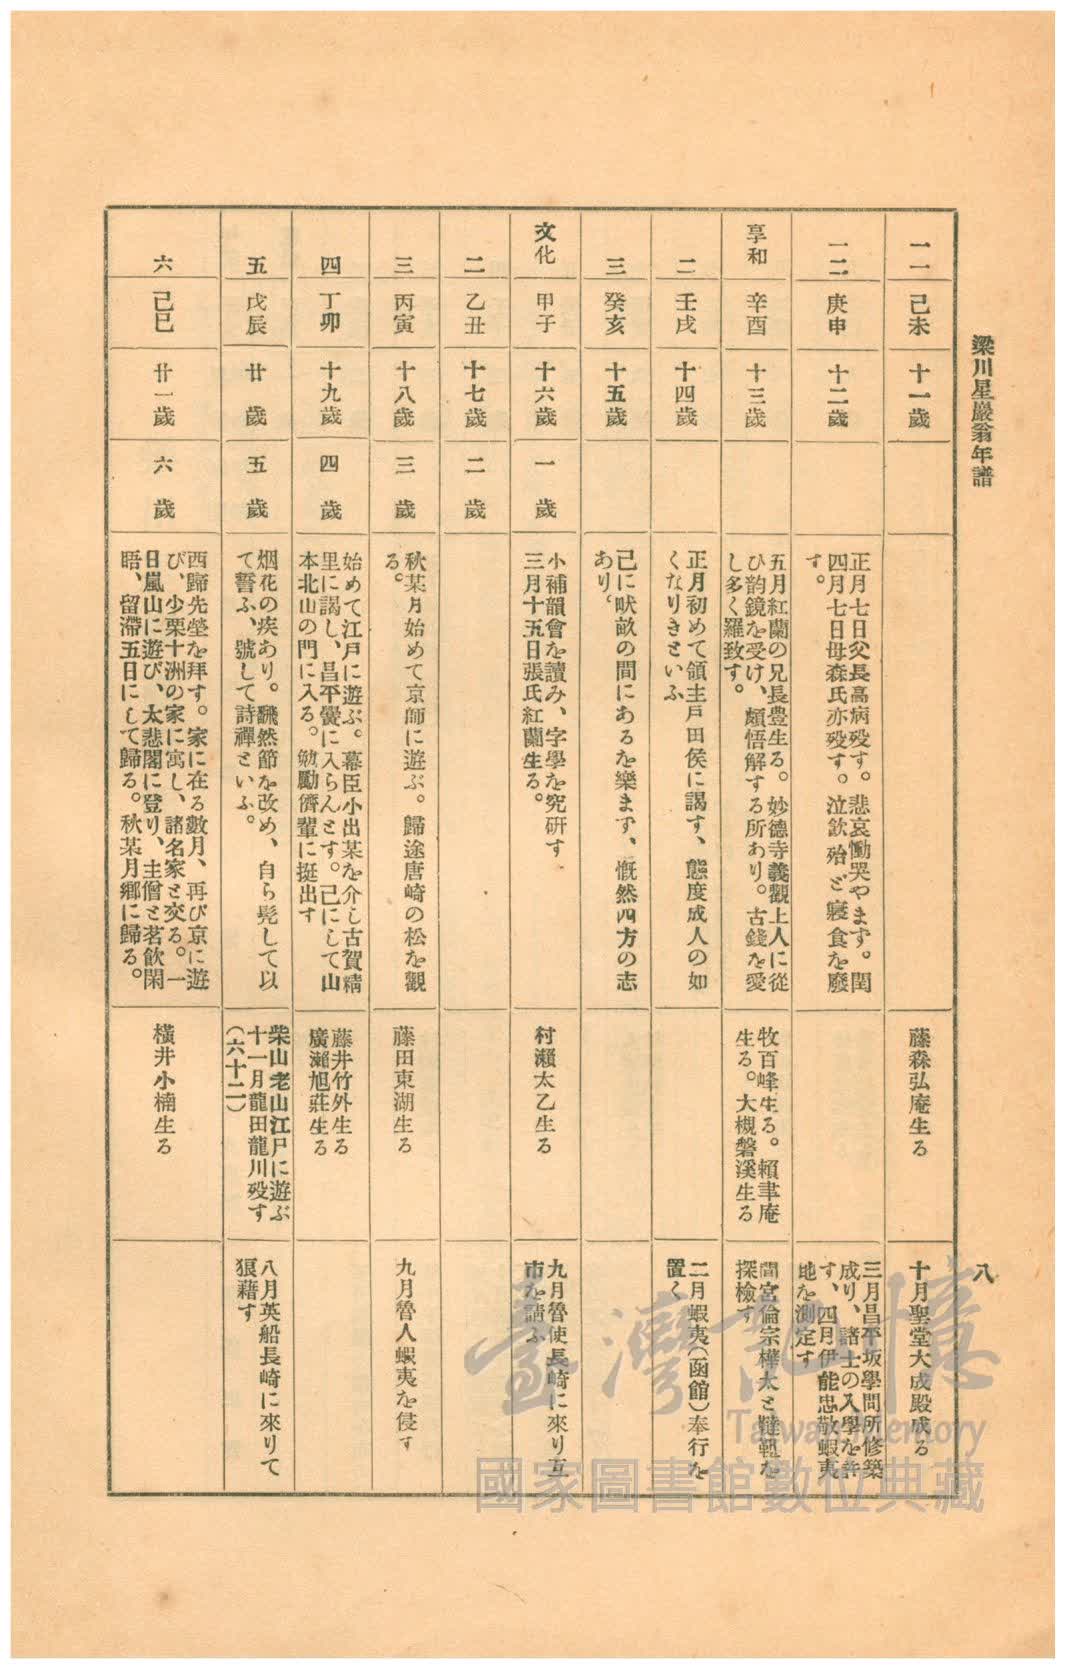 梁川星巖翁年譜
八
一一
己未
十一歲
藤森弘庵生る
十月聖堂大成殿成る
一二
庚申
十二歲
正月七日父長高病歿す。悲哀慟哭やまず。閏
四月七日母森氏亦歿す。泣飮殆ど寢食を廢
す。
三月昌平坂學問所修築
成り、諸士の入學を許
す、四月伊能忠敬蝦夷
地を測定す
享和
辛酉
十三歲
五月紅蘭の兄長豊生る。妙德寺義觀上人に從
ひ韵鏡を受け、頗悟解する所あり。古錢を愛
し多く羅致す。
牧百峰生る。賴聿庵
生る。大槻磐溪生る
間宮倫宗樺太と韃靼を
探檢す
二
壬戌
十四歲
正月初めて領主戸田侯に謁す、態度成人の如
くなりきといふ
二月蝦夷(函館)奉行を
置く
三
癸亥
十五歲
己に畎畝の間にあるを樂まず、慨然四方の志
あり。
文化
甲子
十六歲
一歲
小補韻會を讀み、字學を究研す
三月十五日張氏紅蘭生る。
村瀨太乙生る
九月魯使長崎に來り互
市を請ふ
二
乙丑
十七歲
二歲
三
丙寅
十八歲
三歲
秋某月始めて京師に遊ぶ。歸途唐崎の松を觀
る。
藤田東湖生る
九月魯人蝦夷を侵す
四
丁卯
十九歲
四歲
始めて江戸に遊ぶ。幕臣小出某を介し古賀精
里に謁し、昌平黌に入らんとす。己にして山
本北山の門に入る。勉勵儕輩に挺出す
藤井竹外生る
廣瀨旭莊生る
五
戊辰
廿歲
五歲
烟花の疾あり。飜然節を改め、自ら髠して以
て誓ふ、號して詩禪といふ。
柴山老山江戸に遊ぶ
十一月龍田龍川歿す
(六十二)
八月英船長崎に來りて
狠藉す
六
己巳
廿一歲
六歲
西歸先塋を拜す。家に在る數月、再び京に遊
び、少栗十洲の家に寓し、諸名家と交る。一
日嵐山に遊び、太悲閣に登り、主僧と茗飮閑
晤、留滯五日にして歸る。秋某月鄕に歸る。
橫井小楠生る
臺灣記憶
Taiwan Memory
國家圖書館數位典藏